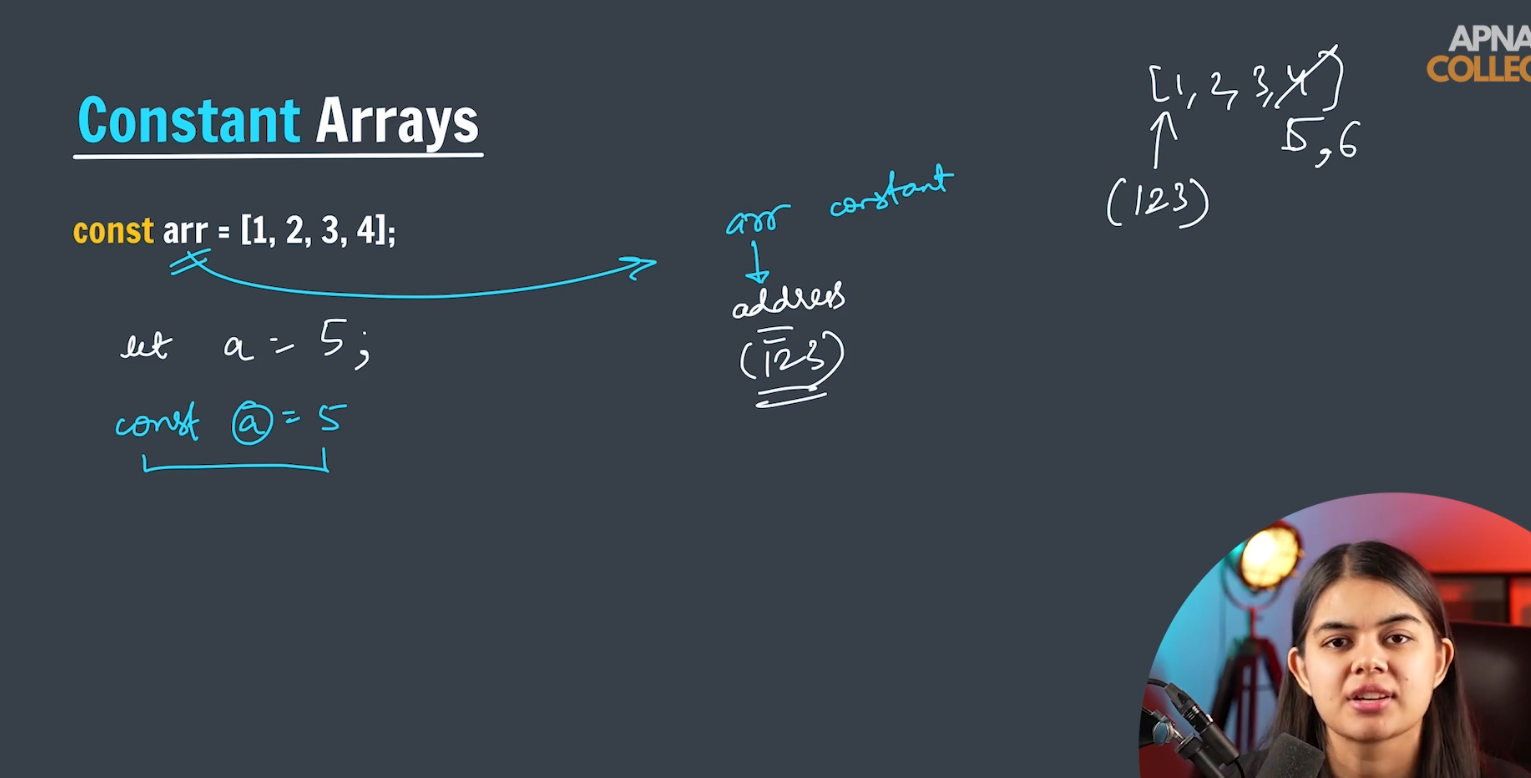 APNA
COLLEC
Constant Arrays
const arr = [1, 2, 3, 4];
let a = 5;
const a = 5
arr constant
address
(123)
[1, 2, 3, 4]
5, 6
(123)